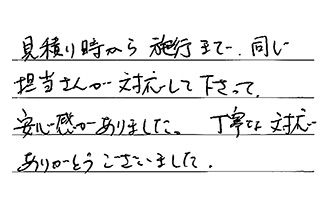 見積り時から施行まで、同じ
担当さんが対応して下さって、
安心感がありました。丁寧な対応
ありがとうございました。